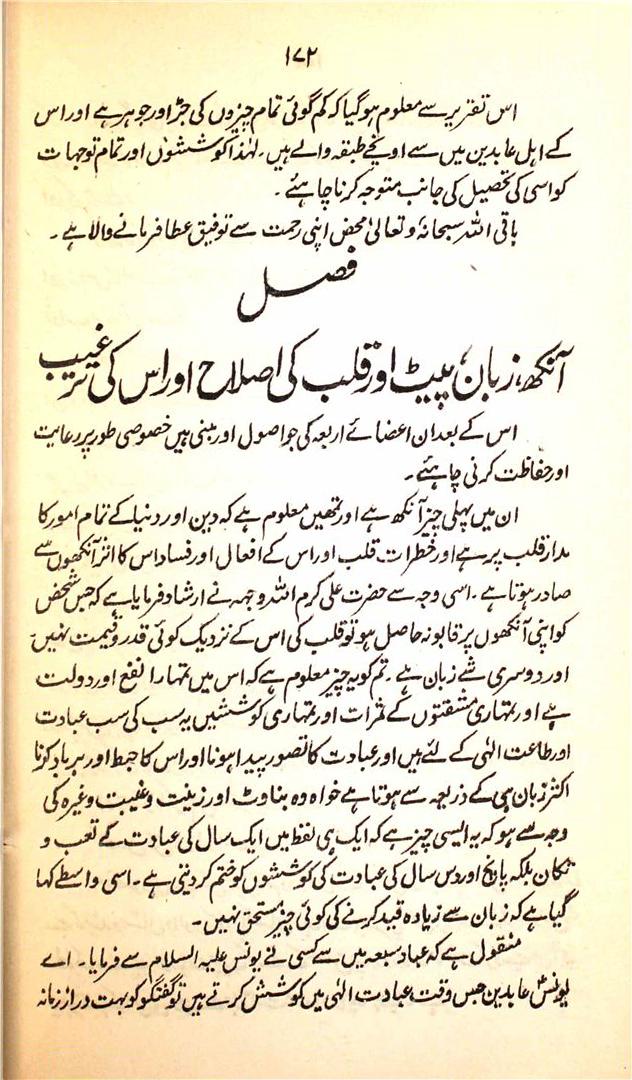 ۱۷۲
اس تقریر سے معلوم ہوگیا کہ کم گوئی تمام چیزوں کی جڑ اور جوہر ہے اور اس
کے اہل عابدین میں سے اونچے طبقہ والے ہیں۔ لہٰذا کوششوں اور تمام توجہات
کو اسی کی تحصیل کی جانب متوجہ کرنا چاہئے۔
باقی اللہ سبحانہٗ وتعالیٰ محض اپنی رحمت سے توفیق عطا فرمانے والا ہے۔
فصل
آنکھ، زبان، پیٹ اور قلب کی اصلاح اور اس کی ترغیب
اس کے بعد ان اعضائے اربعہ کی جو اصول اور مبنی ہیں خصوصی طور پر رعایت
اور حفاظت کرنی چاہئے۔
ان میں پہلی چیز آنکھ ہے اور تمھیں معلوم ہے کہ دین اور دنیا کے تمام امور کا
مدار قلب پر ہے اور خطرات قلب اور اس کے افعال اور فساد اس کا اثر آنکھوں سے
صادر ہوتا ہے۔ اسی وجہ سے حضرت علی کرم اللہ وجہہ نے ارشاد فرمایا ہے کہ جس شخص
کو اپنی آنکھوں پر قابو نہ حاصل ہو تو قلب کی اس کے نزدیک کوئی قدر وقیمت نہیں۔
اور دوسری شے زبان ہے۔ تم کو یہ چیز معلوم ہے کہ اس میں تمہارا نفع اور دولت
ہے اور تمہاری مشقتوں کے ثمرات اور تمہاری کوششیں یہ سب کی سب عبادت
اور طاعت الٰہی کے لئے ہیں اور عبادت کا تصور پیدا ہونا اور اس کا حبط اور برباد کرنا
اکثر زبان ہی کے ذریعہ سے ہوتا ہے خواہ وہ بناوٹ اور زینت وغیبت وغیرہ کی
وجہ سے ہو کہ یہ ایسی چیز ہے کہ ایک ہی لفظ میں ایک سال کی عبادت کے تعب و
تکان بلکہ پانچ اور دس سال کی عبادت کی کوششوں کو ختم کر دیتی ہے۔ اسی واسطے کہا
گیا ہے کہ زبان سے زیادہ قید کرنے کی کوئی چیز مستحق نہیں۔
منقول ہے کہ عباد سبعہ میں سے کسی نے یونس علیہ السلام سے فرمایا۔ اے
یونسؑ عابدین جس وقت عبادت الٰہی میں کوشش کرتے ہیں تو گفتگو کو بہت دراز زمانہ